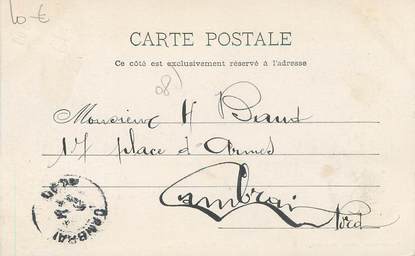 10 €
CARTE POSTALE
Ce côté est exclusivement réservé à l'adresse
08)
Monsieur H Beaud
17 place d'Armes
Cambrai
Nord
CAMBRAI